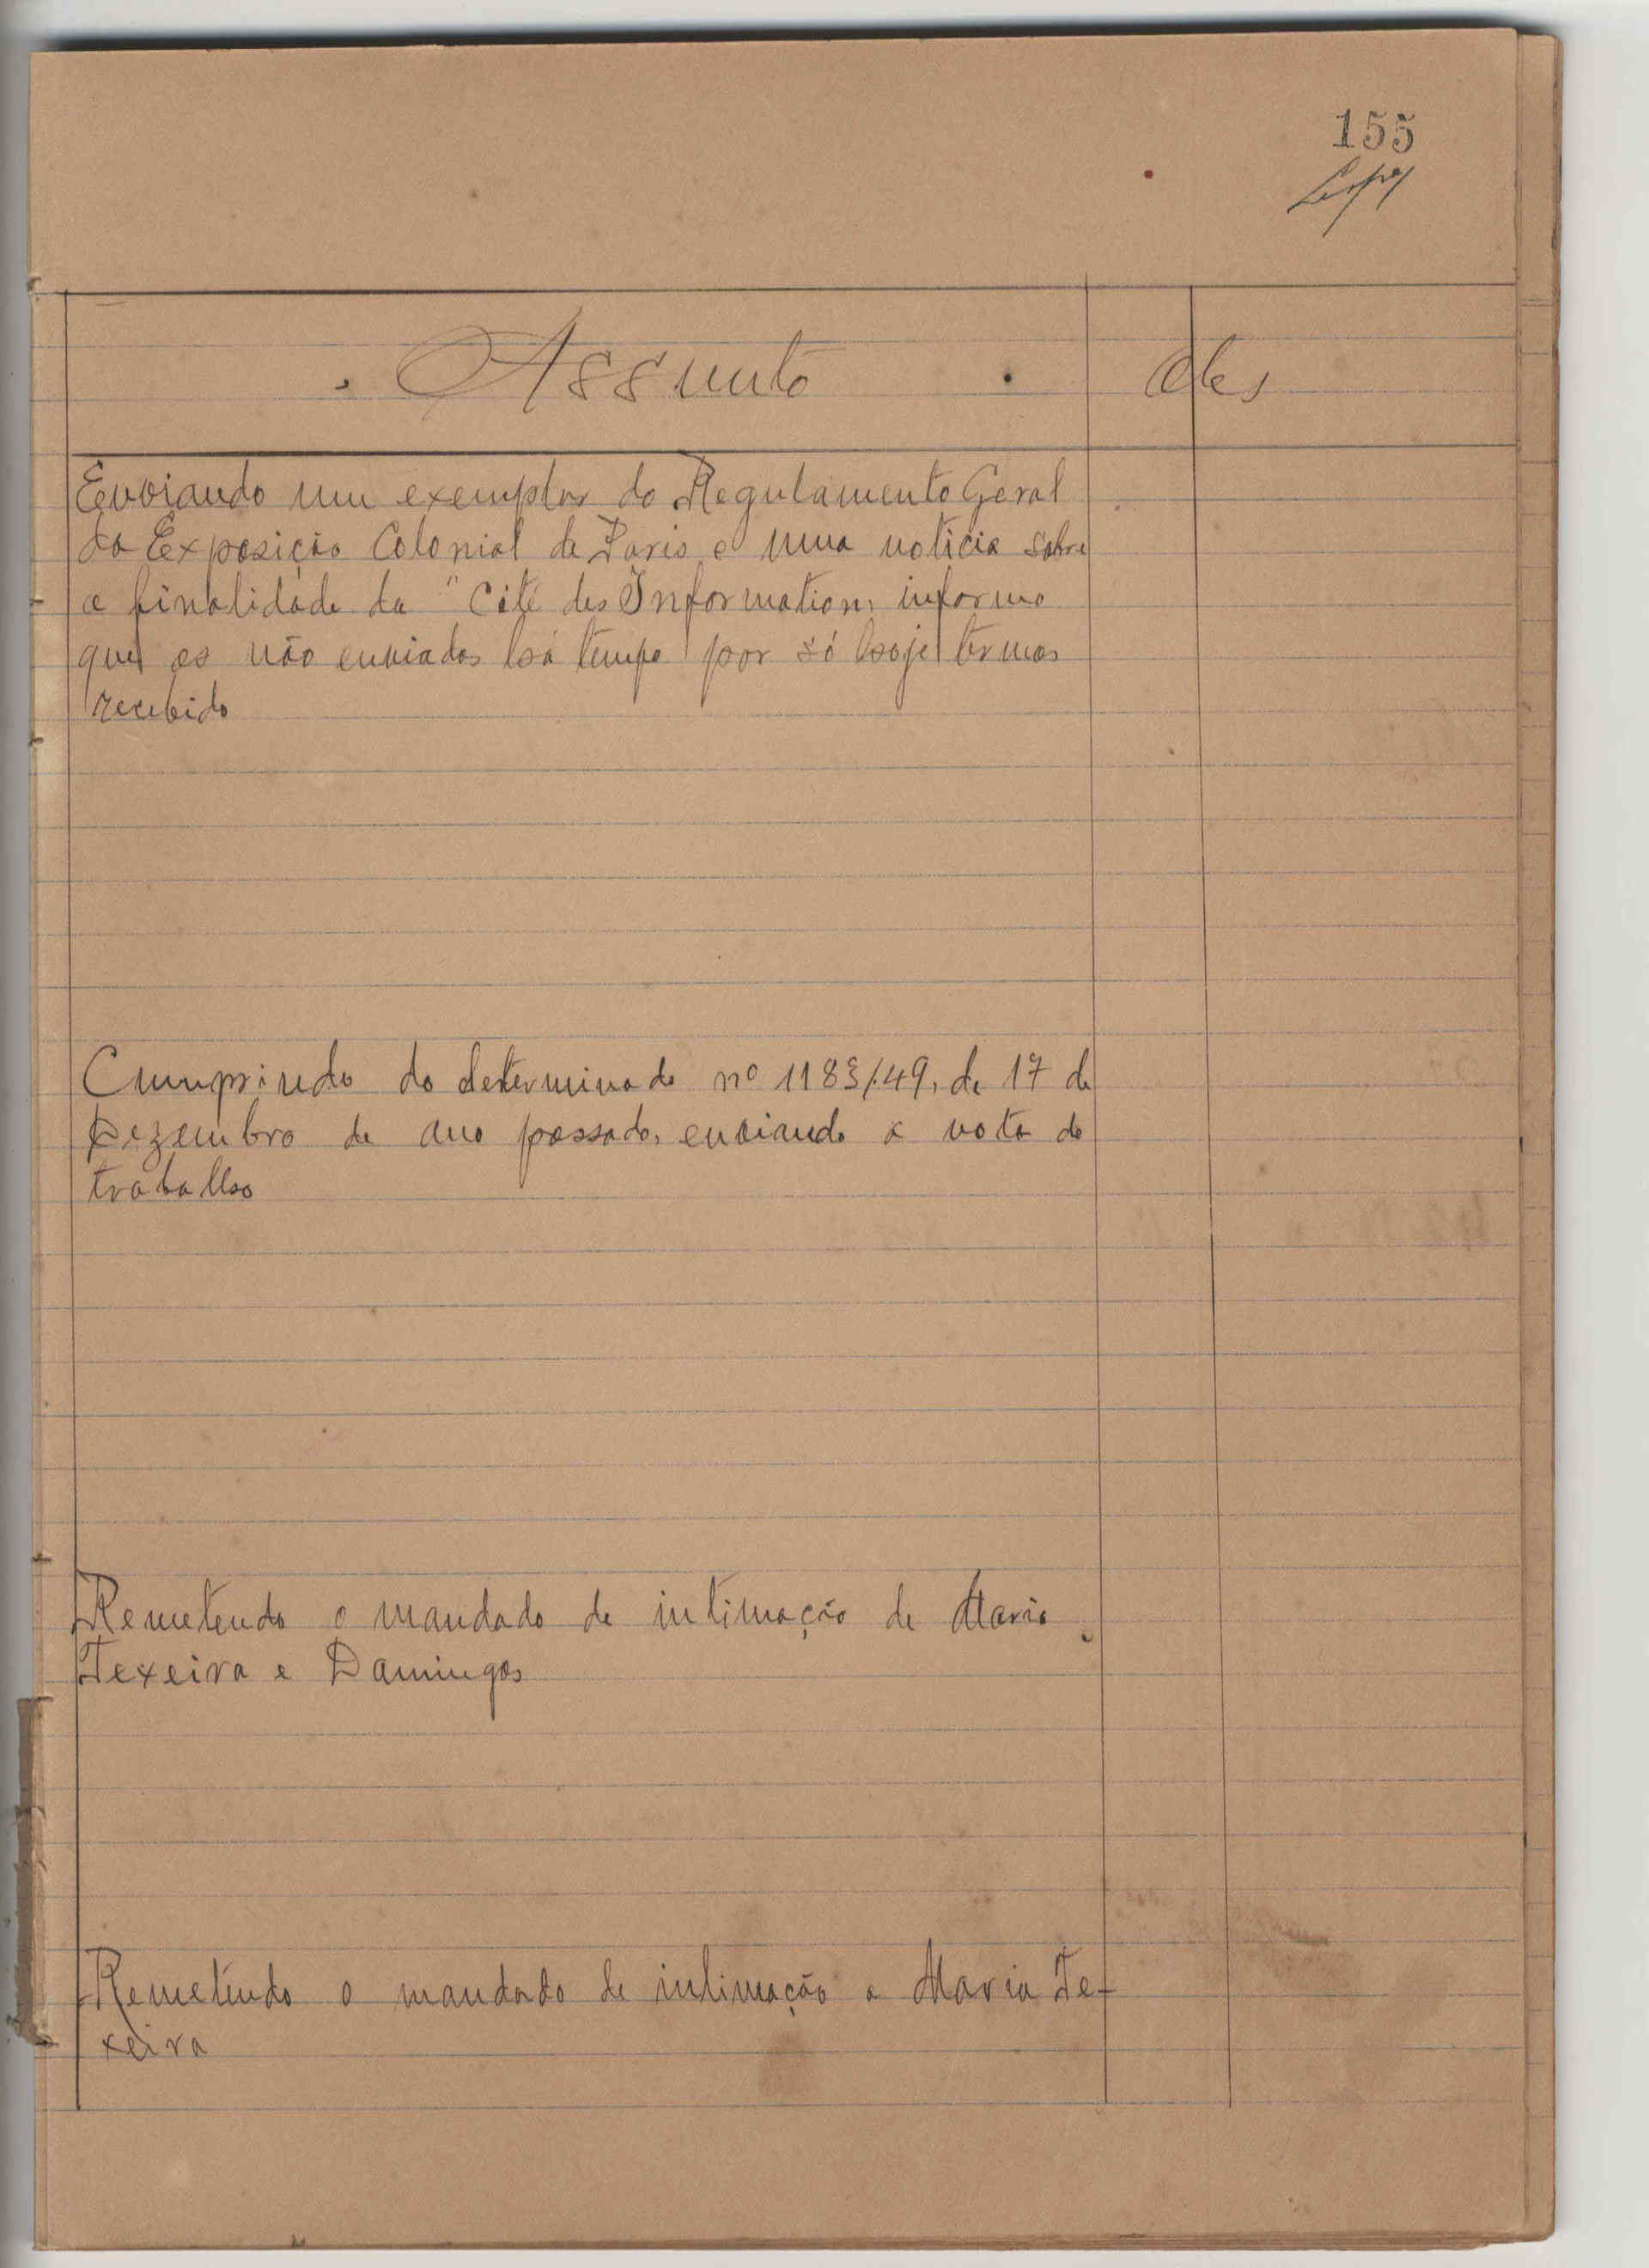 155
Assunto
Obs
Enviando um exemplar do Regulamento Geral
da Exposição Colonial de Paris e uma noticia sobre
a finalidade da "Cité des Information, informo
que os não enviados há tempo por só hoje termos
recebido
Cumprindo do determinado nº 1183/49, de 17 de
Dezembro de ano passado, enviando a nota de
trabalho
Remetendo o mandado de intimação de Maria
Texeira e Damingos
Remetendo o mandado de intimação a Maria Te-
xeira